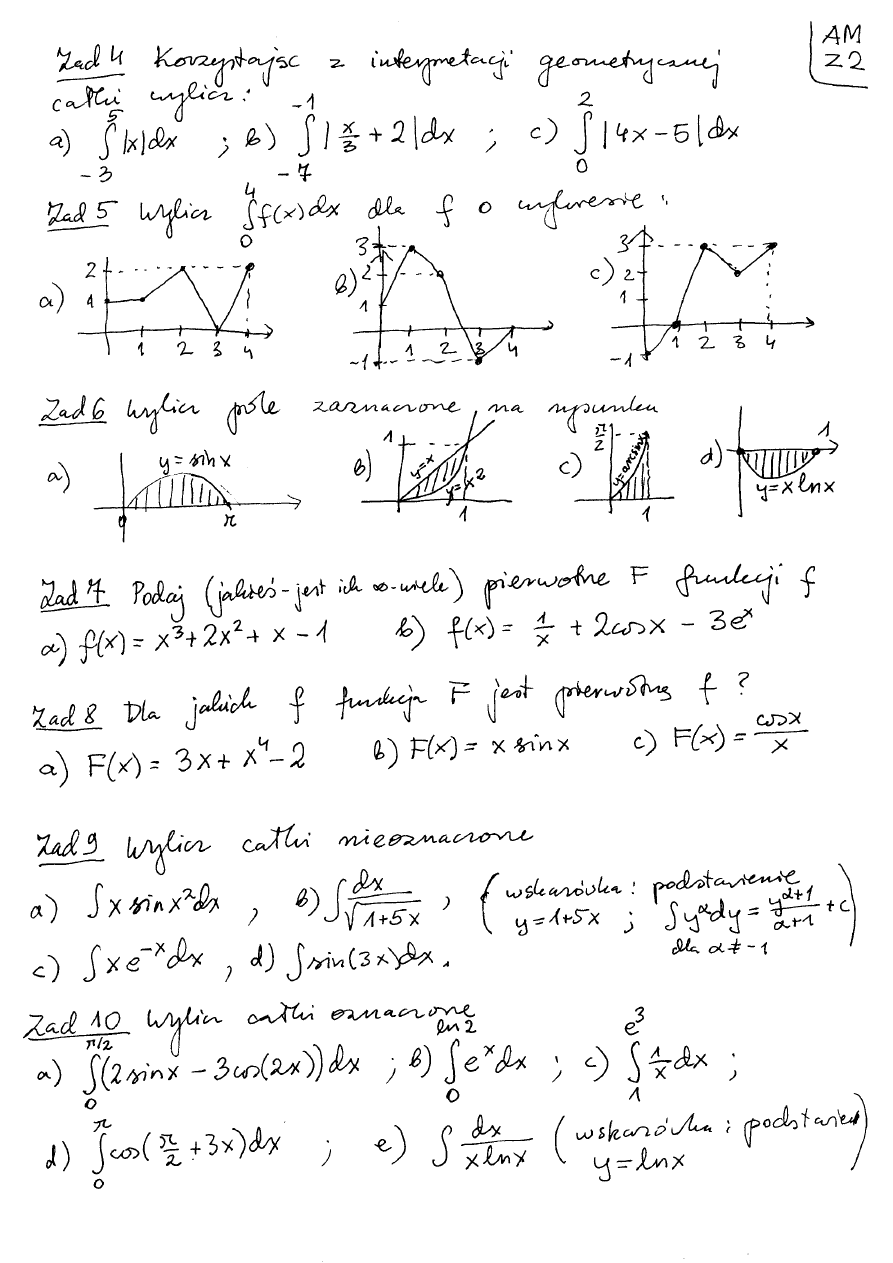 AM
Z2
Zad 4 Korzystając z interpretacji geometrycznej
całki wylicz:
a) ∫_{-3}^{5} |x|dx ; b) ∫_{-7}^{-1} |x/3 + 2|dx ; c) ∫_{0}^{2} |4x-5|dx
Zad 5 Wylicz ∫_{0}^{4} f(x)dx dla f o wykresie:
a) 2 1 1 2 3 4
b) 3 2 1 -1 1 2 3 4
c) 3 2 1 -1 1 2 3 4
Zad 6 Wylicz pole zaznaczone na rysunku
a) y=sinx 0 π
b) 1 y=x y=x² 1
c) π/2 y=arcsinx 1
d) 1 y=xlnx
Zad 7 Podaj (jakieś-jest ich ∞-wiele) pierwotne F funkcji f
a) f(x)= x³+2x²+x-1 b) f(x)= 1/x + 2cosx - 3eˣ
Zad 8 Dla jakich f funkcja F jest pierwotną f?
a) F(x)= 3x+x⁴-2 b) F(x)= x sinx c) F(x)= cosx/x
Zad 9 Wylicz całki nieoznaczone
a) ∫x sinx²dx , b) ∫dx/√(1+5x) , (wskazówka: podstawienie
y=1+5x ; ∫y^αdy = y^(α+1)/(α+1) + c
dla α≠-1)
c) ∫xe⁻ˣdx , d) ∫sin(3x)dx.
Zad 10 Wylicz całki oznaczone
a) ∫_{0}^{π/2} (2sinx - 3cos(2x))dx ; b) ∫_{0}^{ln2} eˣdx ; c) ∫_{1}^{e³} 1/x dx ;
d) ∫_{0}^{π} cos(π/2 + 3x)dx ; e) ∫ dx/(xlnx) (wskazówka: podstawien
y=lnx)